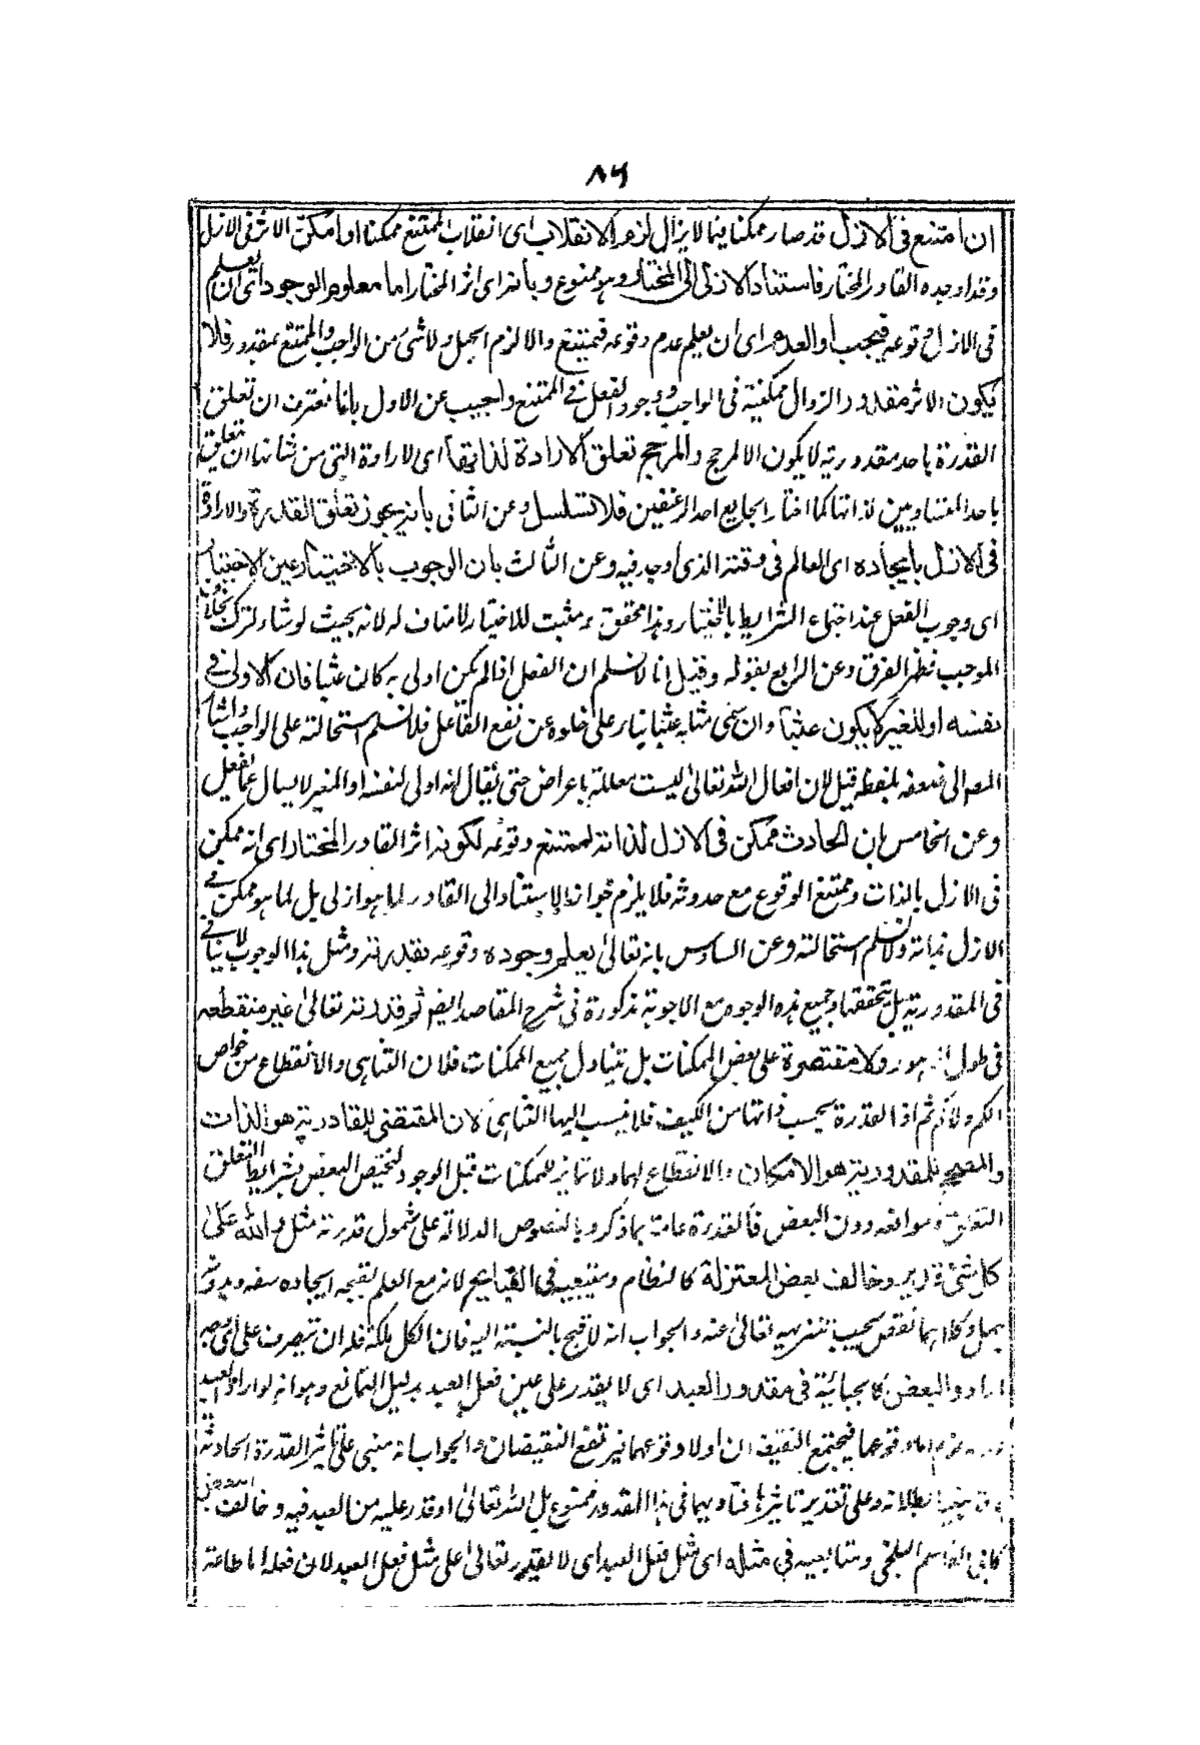 ٨٦
ان امتنع فى الازل قد صار ممكنا فيما لا يزال لزم الانقلاب اى انقلاب الممتنع ممكنا او امكن الاثر فى الازل
وقد اوجده القادر المختار فاستناد الازلى الى المختار وهو ممنوع وبانه اى اثر المختار اما معلوم الوجود اى ان يعلم
فى الازل وقوعه فيجب او العدم اى ان يعلم عدم وقوعه فيمتنع والا لزم الجهل ولا شئ من الواجب والممتنع بمقدور فلا
يكون الاثر مقدورا لزوال مكنة فى الواجب ووجود الفعل فى الممتنع واجيب عن الاول بانا نعترف ان تعلق
القدرة باحد مقدوريه لا يكون الا لمرجح والمرجح تعلق الارادة لذاتها اى الارادة التى من شانها ان تتعلق
باحد المتساويين لذاتها كما اختار الجايع احد الرغيفين فلا تسلسل وعن الثانى بانه يجوز تعلق القدرة والارادة
فى الازل بايجاده اى العالم فى وقته الذى اوجد فيه وعن الثالث بان الوجوب بالاختيار عين الاختيار
اى وجوب الفعل عند اجتماع الشرايط بالاختيار وهذا محقق و مثبت للاختيار لا مناف له لانه بحيث لو شاء لترك بخلاف
الموجب فظهر الفرق وعن الرابع بقوله وقيل انا لا نسلم ان الفعل اذا لم يكن اولى به كان عبثا فان الاولى فى
نفسه او للغير لا يكون عبثا وان سمى مثله عبثا بناء على خلوه عن نفع الفاعل فلا نسلم استحالته على الواجب واشار
المصم الى ضعفه بلفظة قيل لان افعال الله تعالى ليست معللة باغراض حتى يقال انه اولى لنفسه او للغير لا يسال عما يفعل
وعن الخامس بان الحادث ممكن فى الازل لذاته ممتنع وقوعه لكونه اثر القادر المختار اى انه ممكن
فى الازل بالذات وممتنع الوقوع مع حدوثه فلا يلزم جواز الاستناد الى القادر لما هو ازلى بل لما هو ممكن فى
الازل بذاته ولا نسلم استحالته وعن السادس بانه تعالى يعلم وجوده وقوعه بقدرته ومثل هذا الوجوب لا ينافى
فى المقدورية بل يحققها وجميع هذه الوجوه مع الاجوبة مذكورة فى شرح المقاصد ايضم ثم قدرته تعالى غير منقطعة
فى طول الدهور ولا مقتصرة على بعض الممكنات بل تتناول جميع الممكنات فلان التناهى والانقطاع من خواص
الكم ولا كم ثم اذ القدرة بحسب ذاتها من الكيف فلا ينسب اليها التناهى لان المقتضى للقادرية هو الذات
والمصحح للمقدورية هو الامكان ولا انقطاع لهما ولا تمايز للممكنات قبل الوجود لتختص البعض بشرايط التعلق
التعلق وموانعه دون البعض فالقدرة عامة بما ذكر وبالنصوص الدلالة على شمول قدرته مثل والله على
كل شئ قدير وخالف بعض المعتزلة كالنظام ومتبعيه فى القبايح لانه مع العلم بقبحه ايجاده سفه وبدونه
جهل وكلاهما نقص يجب تنزيهه تعالى عنه والجواب انه لا قبح بالنسبة اليه فان الكل ملكه فله ان يتصرف على اى وجه
اراد والبعض كالجبائية فى مقدور العبد اى لا يقدر على عين فعل العبد بدليل التمانع وهو انه لو اراد العبد
وقوعهما فيجتمع النقيضان او لا وقوعهما فيرتفع النقيضان والجواب انه مبنى على تاثير القدرة الحادثة
بطلانه وعلى تقدير تاثيرها فتساويهما فى هذا المقدور ممنوع بل الله تعالى اقدر عليه من العبد فيه وخالف
كابى القاسم البلخى ومتابعيه فى مثله اى مثل فعل العبد اى لا يقدر تعالى على مثل فعل العبد لان فعله اما طاعة